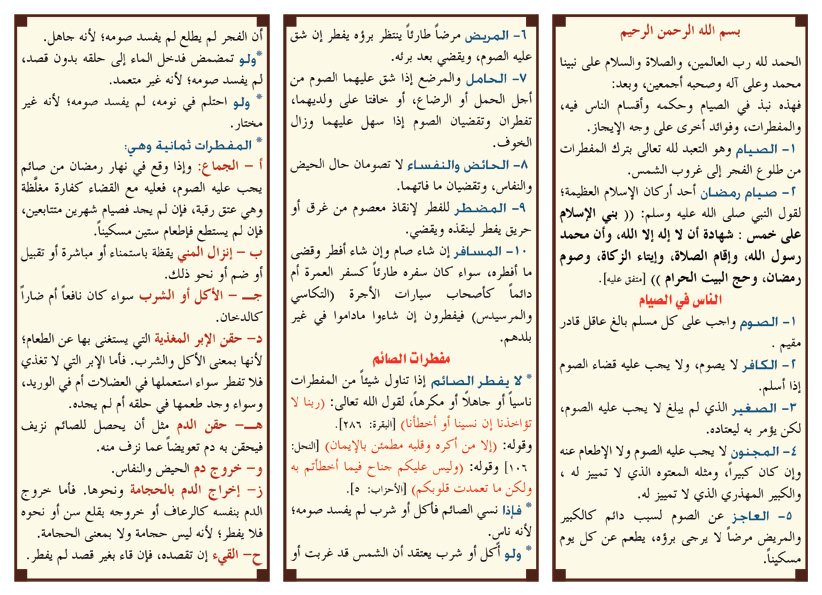 بسم الله الرحمن الرحيم
الحمد لله رب العالمين، والصلاة والسلام على نبينا
محمد وعلى آله وصحبه أجمعين، وبعد:
فهذه نبذ في الصيام وحكمه وأقسام الناس فيه،
والمفطرات، وفوائد أخرى على وجه الإيجاز.
١- الصيام وهو التعبد لله تعالى بترك المفطرات
من طلوع الفجر إلى غروب الشمس.
٢- صيام رمضان أحد أركان الإسلام العظيمة؛
لقول النبي صلى الله عليه وسلم: (( بني الإسلام
على خمس : شهادة أن لا إله إلا الله، وأن محمد
رسول الله، وإقام الصلاة، وإيتاء الزكاة، وصوم
رمضان، وحج البيت الحرام )) [متفق عليه].
الناس في الصيام
١- الصوم واجب على كل مسلم بالغ عاقل قادر
مقيم .
٢- الكافر لا يصوم، ولا يجب عليه قضاء الصوم
إذا أسلم.
٣- الصغير الذي لم يبلغ لا يجب عليه الصوم،
لكن يؤمر به ليعتاده.
٤- المجنون لا يجب عليه الصوم ولا الإطعام عنه
وإن كان كبيراً، ومثله المعتوه الذي لا تمييز له ،
والكبير المهذري الذي لا تمييز له.
٥- العاجز عن الصوم لسبب دائم كالكبير
والمريض مرضاً لا يرجى برؤه، يطعم عن كل يوم
مسكيناً.
٦- المريض مرضاً طارئاً ينتظر برؤه يفطر إن شق
عليه الصوم، ويقضي بعد برئه.
٧- الحامل والمرضع إذا شق عليهما الصوم من
أجل الحمل أو الرضاع، أو خافتا على ولديهما،
تفطران وتقضيان الصوم إذا سهل عليهما وزال
الخوف.
٨- الحائض والنفساء لا تصومان حال الحيض
والنفاس، وتقضيان ما فاتهما.
٩- المضطر للفطر لإنقاذ معصوم من غرق أو
حريق يفطر لينقذه ويقضي.
١٠- المسافر إن شاء صام وإن شاء أفطر وقضى
ما أفطره، سواء كان سفره طارئاً كسفر العمرة أم
دائماً كأصحاب سيارات الأجرة (التكاسي
والمرسيدس) فيفطرون إن شاءوا ماداموا في غير
بلدهم.
مفطرات الصائم
* لا يفطر الصائم إذا تناول شيئاً من المفطرات
ناسياً أو جاهلاً أو مكرهاً، لقول الله تعالى: (ربنا لا
تؤاخذنا إن نسينا أو أخطأنا) [البقرة: ٢٨٦].
وقوله: (إلا من أكره وقلبه مطمئن بالإيمان) [النحل:
١٠٦] وقوله: (وليس عليكم جناح فيما أخطأتم به
ولكن ما تعمدت قلوبكم) [الأحزاب: ٥].
* فإذا نسي الصائم فأكل أو شرب لم يفسد صومه؛
لأنه ناس.
* ولو أكل أو شرب يعتقد أن الشمس قد غربت أو
أن الفجر لم يطلع لم يفسد صومه؛ لأنه جاهل.
*ولو تمضمض فدخل الماء إلى حلقه بدون قصد،
لم يفسد صومه؛ لأنه غير متعمد.
* ولو احتلم في نومه، لم يفسد صومه؛ لأنه غير
مختار.
* المفطرات ثمانية وهي:
أ - الجماع: وإذا وقع في نهار رمضان من صائم
يجب عليه الصوم، فعليه مع القضاء كفارة مغلَّظة
وهي عتق رقبة، فإن لم يجد فصيام شهرين متتابعين،
فإن لم يستطع فإطعام ستين مسكيناً.
ب - إنزال المني يقظة باستمناء أو مباشرة أو تقبيل
أو ضم أو نحو ذلك.
جـ - الأكل أو الشرب سواء كان نافعاً أم ضاراً
كالدخان.
د- حقن الإبر المغذية التي يستغنى بها عن الطعام؛
لأنها بمعنى الأكل والشرب. فأما الإبر التي لا تغذي
فلا تفطر سواء استعملها في العضلات أم في الوريد،
وسواء وجد طعمها في حلقه أم لم يجده.
هـ- حقن الدم مثل أن يحصل للصائم نزيف
فيحقن به دم تعويضاً عما نزف منه.
و- خروج دم الحيض والنفاس.
ز- إخراج الدم بالحجامة ونحوها. فأما خروج
الدم بنفسه كالرعاف أو خروجه بقلع سن أو نحوه
فلا يفطر؛ لأنه ليس حجامة ولا بمعنى الحجامة.
ح- القيء إن تقصده، فإن قاء بغير قصد لم يفطر.